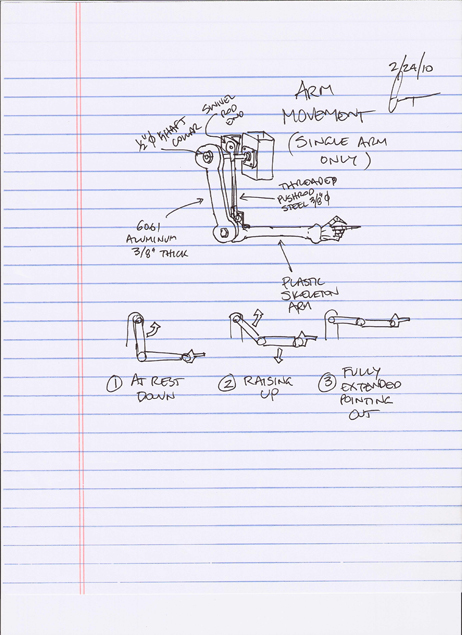 2/24/10
ARM
MOVEMENT
(SINGLE ARM
ONLY)
SWIVEL
ROD
END
1/2"φ SHAFT
COLLAR
THREADED
PUSHROD
STEEL 3/8"φ
6061
ALUMINUM
3/8" THICK
PLASTIC
SKELETON
ARM
① AT REST
DOWN
② RAISING
UP
③ FULLY
EXTENDED
POINTING
OUT